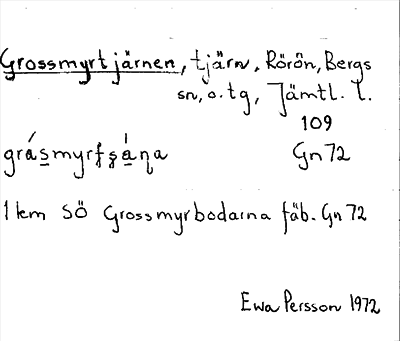 Grossmyrtjärnen, tjärn, Rörön, Bergs
sn, o. tg, Jämtl. l.
109
Gn 72
1 km SÖ Grossmyrbodarna fäb. Gn 72
Ewa Persson 1972